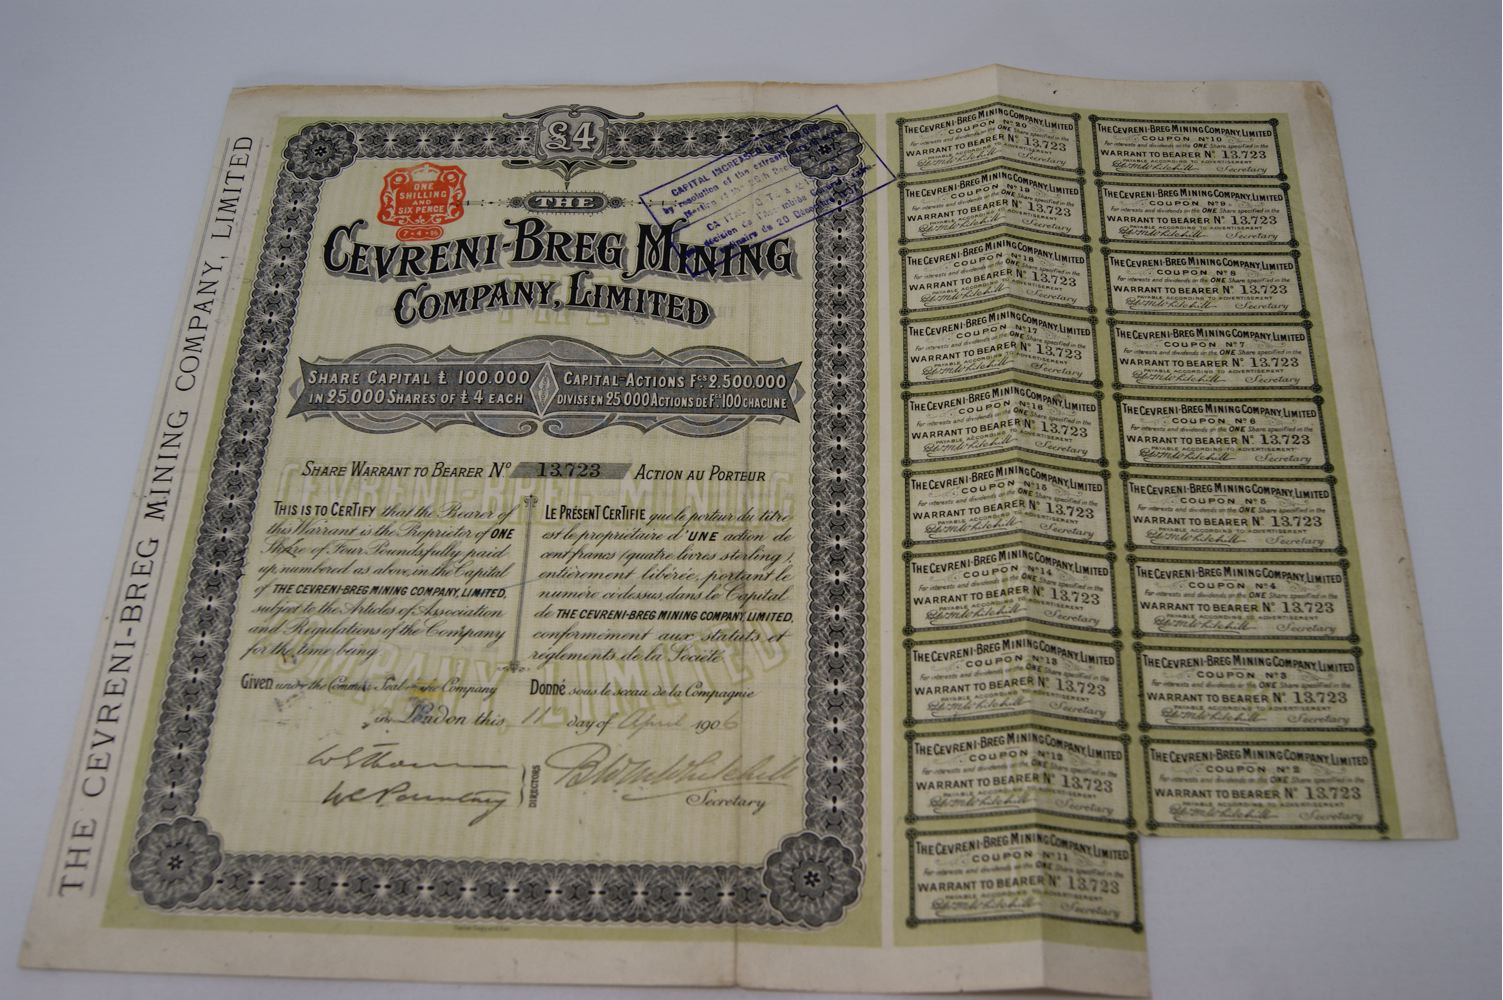 THE CEVRENI-BREG MINING COMPANY, LIMITED
£4
ONE
SHILLING
AND
SIX PENCE
7·4·
CAPITAL INCREASED
by resolution of the
THE
CEVRENI-BREG MINING
COMPANY, LIMITED
SHARE CAPITAL £ 100.000
IN 25.000 SHARES OF £ 4 EACH
CAPITAL-ACTIONS Fcs 2,500,000
DIVISÉ EN 25000 ACTIONS DE Fcs 100 CHACUNE
SHARE WARRANT TO BEARER No 13.723 ACTION AU PORTEUR
THIS IS TO CERTIFY that the Bearer of
this Warrant is the Proprietor of ONE
Share of Four Pounds fully paid
up, numbered as above, in the Capital
of THE CEVRENI-BREG MINING COMPANY, LIMITED,
subject to the Articles of Association
and Regulations of the Company
for the time being
LE PRÉSENT CERTIFIE que le porteur du titre
est le propriétaire d'UNE action de
cent francs (quatre livres sterling),
entièrement libérée, portant le
numéro ci-dessus, dans le Capital
de THE CEVRENI-BREG MINING COMPANY, LIMITED,
conformément aux statuts et
règlements de la Société
Given under the Common Seal of the Company
Donné sous le sceau de la Compagnie
in London this, 11 day of April 1906
DIRECTORS
Secretary
THE CEVRENI-BREG MINING COMPANY, LIMITED
COUPON No 20
For interests and dividends on the ONE Share specified in the
WARRANT TO BEARER No 13.723
PAYABLE ACCORDING TO ADVERTISEMENT
Secretary
THE CEVRENI-BREG MINING COMPANY, LIMITED
COUPON No 10
For interests and dividends on the ONE Share specified in the
WARRANT TO BEARER No 13.723
PAYABLE ACCORDING TO ADVERTISEMENT
Secretary
THE CEVRENI-BREG MINING COMPANY, LIMITED
COUPON No 19
For interests and dividends on the ONE Share specified in the
WARRANT TO BEARER No 13.723
PAYABLE ACCORDING TO ADVERTISEMENT
Secretary
THE CEVRENI-BREG MINING COMPANY, LIMITED
COUPON No 9
For interests and dividends on the ONE Share specified in the
WARRANT TO BEARER No 13.723
PAYABLE ACCORDING TO ADVERTISEMENT
Secretary
THE CEVRENI-BREG MINING COMPANY, LIMITED
COUPON No 18
For interests and dividends on the ONE Share specified in the
WARRANT TO BEARER No 13.723
PAYABLE ACCORDING TO ADVERTISEMENT
Secretary
THE CEVRENI-BREG MINING COMPANY, LIMITED
COUPON No 8
For interests and dividends on the ONE Share specified in the
WARRANT TO BEARER No 13.723
PAYABLE ACCORDING TO ADVERTISEMENT
Secretary
THE CEVRENI-BREG MINING COMPANY, LIMITED
COUPON No 17
For interests and dividends on the ONE Share specified in the
WARRANT TO BEARER No 13.723
PAYABLE ACCORDING TO ADVERTISEMENT
Secretary
THE CEVRENI-BREG MINING COMPANY, LIMITED
COUPON No 7
For interests and dividends on the ONE Share specified in the
WARRANT TO BEARER No 13.723
PAYABLE ACCORDING TO ADVERTISEMENT
Secretary
THE CEVRENI-BREG MINING COMPANY, LIMITED
COUPON No 16
For interests and dividends on the ONE Share specified in the
WARRANT TO BEARER No 13.723
PAYABLE ACCORDING TO ADVERTISEMENT
Secretary
THE CEVRENI-BREG MINING COMPANY, LIMITED
COUPON No 6
For interests and dividends on the ONE Share specified in the
WARRANT TO BEARER No 13.723
PAYABLE ACCORDING TO ADVERTISEMENT
Secretary
THE CEVRENI-BREG MINING COMPANY, LIMITED
COUPON No 15
For interests and dividends on the ONE Share specified in the
WARRANT TO BEARER No 13.723
PAYABLE ACCORDING TO ADVERTISEMENT
Secretary
THE CEVRENI-BREG MINING COMPANY, LIMITED
COUPON No 5
For interests and dividends on the ONE Share specified in the
WARRANT TO BEARER No 13.723
PAYABLE ACCORDING TO ADVERTISEMENT
Secretary
THE CEVRENI-BREG MINING COMPANY, LIMITED
COUPON No 14
For interests and dividends on the ONE Share specified in the
WARRANT TO BEARER No 13.723
PAYABLE ACCORDING TO ADVERTISEMENT
Secretary
THE CEVRENI-BREG MINING COMPANY, LIMITED
COUPON No 4
For interests and dividends on the ONE Share specified in the
WARRANT TO BEARER No 13.723
PAYABLE ACCORDING TO ADVERTISEMENT
Secretary
THE CEVRENI-BREG MINING COMPANY, LIMITED
COUPON No 13
For interests and dividends on the ONE Share specified in the
WARRANT TO BEARER No 13.723
PAYABLE ACCORDING TO ADVERTISEMENT
Secretary
THE CEVRENI-BREG MINING COMPANY, LIMITED
COUPON No 3
For interests and dividends on the ONE Share specified in the
WARRANT TO BEARER No 13.723
PAYABLE ACCORDING TO ADVERTISEMENT
Secretary
THE CEVRENI-BREG MINING COMPANY, LIMITED
COUPON No 12
For interests and dividends on the ONE Share specified in the
WARRANT TO BEARER No 13.723
PAYABLE ACCORDING TO ADVERTISEMENT
Secretary
THE CEVRENI-BREG MINING COMPANY, LIMITED
COUPON No 2
For interests and dividends on the ONE Share specified in the
WARRANT TO BEARER No 13.723
PAYABLE ACCORDING TO ADVERTISEMENT
Secretary
THE CEVRENI-BREG MINING COMPANY, LIMITED
COUPON No 11
For interests and dividends on the ONE Share specified in the
WARRANT TO BEARER No 13.723
PAYABLE ACCORDING TO ADVERTISEMENT
Secretary